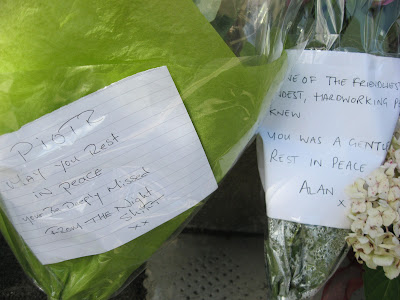 PIOTR
MAY YOU REST
IN PEACE
YOU'RE Deeply MISSED
FROM THE NIGHT
SHIFT
xx
ONE OF THE FRIENDLIEST
HARDWORKING
KNEW
YOU WAS A GENTLE
REST IN PEACE
ALAN
x